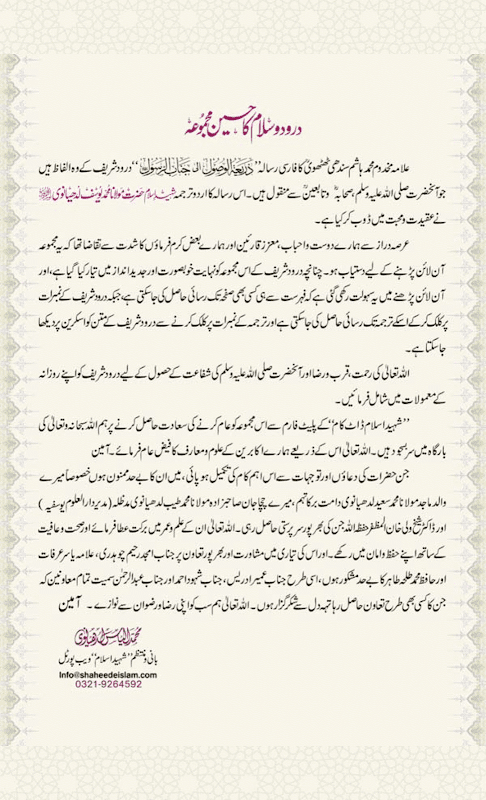 درود و سلام کا حسین مجموعہ
علامہ مخدوم محمد ہاشم سندھی ٹھٹھوی کا فارسی رسالہ ’’ذریعۃ الوصول الیٰ جناب الرسول‘‘ درود شریف کے وہ الفاظ ہیں
جو آنحضرت صلی اللہ علیہ وسلم، صحابہؓ و تابعینؒ سے منقول ہیں۔ اس رسالہ کا اردو ترجمہ شہید اسلام حضرت مولانا محمد یوسف لدھیانوی
نے عقیدت و محبت میں ڈوب کر کیا ہے۔
عرصہ دراز سے ہمارے دوست و احباب، معزز قارئین اور ہمارے بعض کرم فرماؤں کا شدت سے تقاضا تھا کہ یہ مجموعہ
آن لائن پڑھنے کے لیے دستیاب ہو۔ چنانچہ درود شریف کے اس مجموعہ کو نہایت خوبصورت اور جدید انداز میں تیار کیا گیا ہے، اور
آن لائن پڑھنے میں یہ سہولت رکھی گئی ہے کہ فہرست سے ہی کسی بھی صفحہ تک رسائی حاصل کی جاسکتی ہے، جبکہ درود شریف کے نمبرات
پر کلک کر کے اسکے ترجمہ تک رسائی حاصل کی جاسکتی ہے اور ترجمہ کے نمبرات پر کلک کرنے سے درود شریف کے متن کو اسکرین پر دیکھا
جاسکتا ہے۔
اللہ تعالیٰ کی رحمت، قرب و رضا اور آنحضرت صلی اللہ علیہ وسلم کی شفاعت کے حصول کے لیے درود شریف کو اپنے روزانہ
کے معمولات میں شامل فرمائیں۔
’’شہید اسلام ڈاٹ کام‘‘ کے پلیٹ فارم سے اس مجموعہ کو عام کرنے کی سعادت حاصل کرنے پر ہم اللہ سبحانہ وتعالیٰ کی
بارگاہ میں سربسجود ہیں۔ اللہ تعالیٰ اس کے ذریعے ہمارے اکابرین کے علوم و معارف کا فیض عام فرمائے۔ آمین
جن حضرات کی دعاؤں اور توجہات سے اس اہم کام کی تکمیل ہو پائی، میں ان کا بے حد ممنون ہوں خصوصاً میرے
والد ماجد مولانا محمد سعید لدھیانوی دامت برکاتہم، میرے چچا جان صاحبزادہ مولانا محمد طیب لدھیانوی مدظلہ (مدیر دارالعلوم یوسفیہ)
اور ڈاکٹر شیخ ولی خان المظفر حفظ اللہ جن کی بھرپور سرپرستی حاصل رہی۔ اللہ تعالیٰ ان کے علم و عمر میں برکت عطا فرمائے اور صحت و عافیت
کے ساتھ اپنے حفظ و امان میں رکھے۔ اور اس کی تیاری میں مشاورت اور بھرپور تعاون پر جناب امجد رحیم چوہدری، علامہ یاسر عرفات
اور حافظ محمد طلحہ طاہر کا بے حد مشکور ہوں، اسی طرح جناب عمیر ادریس، جناب شہود احمد اور جناب عبدالرحمٰن سمیت تمام معاونین کہ
جن کا کسی بھی طرح تعاون حاصل رہا تہہ دل سے شکر گزار ہوں۔ اللہ تعالیٰ ہم سب کو اپنی رضا و رضوان سے نوازے۔ آمین
محمد الیاس لدھیانوی
بانی و منتظم ’’شہید اسلام‘‘ ویب پورٹل
Info@shaheedeislam.com
0321-9264592